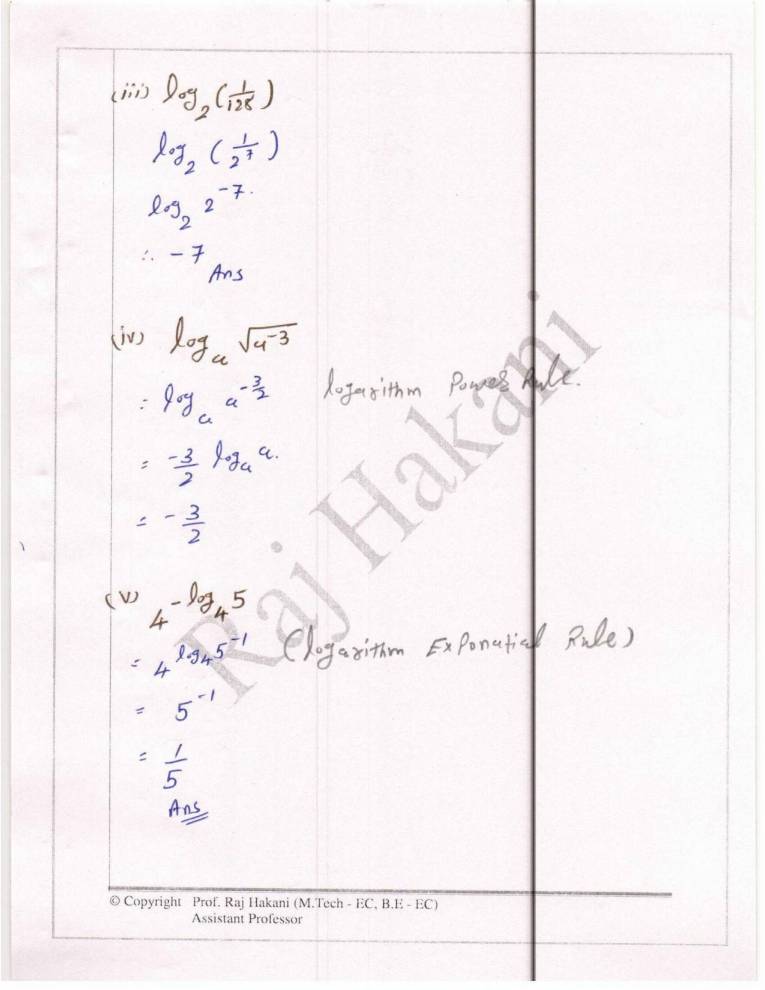 (iii) log₂(1/128)
log₂(1/2⁷)
log₂ 2⁻⁷.
∴ -7
Ans
(iv) logₐ √a⁻³
= logₐ a^(-3/2) logarithm Power Rule.
= -3/2 logₐ a.
= -3/2
(v) 4^(-log₄5)
= 4^(log₄5⁻¹) (logarithm Exponatial Rule)
= 5⁻¹
= 1/5
Ans
Raj Hakani
© Copyright Prof. Raj Hakani (M.Tech - EC, B.E - EC)
Assistant Professor